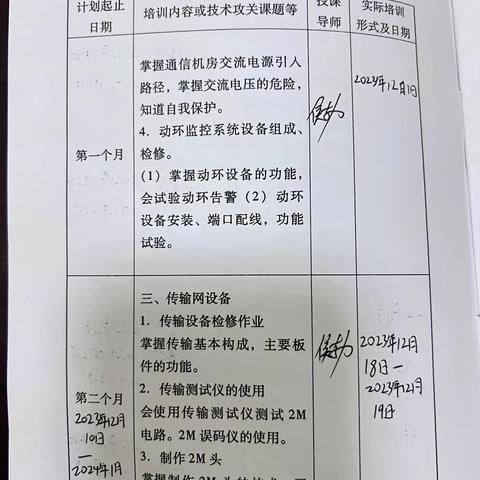 计划起止
日期
培训内容或技术攻关课题等
授课
导师
实际培训
形式及日期
第一个月
掌握通信机房交流电源引入
路径，掌握交流电压的危险，
知道自我保护。
4．动环监控系统设备组成、
检修。
（1）掌握动环设备的功能，
会试验动环告警（2）动环
设备安装、端口配线，功能
试验。
2023年12月1日
第二个月
2023年12月
10日
—
2024年1月
三、传输网设备
1．传输设备检修作业
掌握传输基本构成，主要板
件的功能。
2．传输测试仪的使用
会使用传输测试仪测试 2M
电路。2M 误码仪的使用。
3．制作 2M 头
2023年12月
18日—
2023年12月
19日